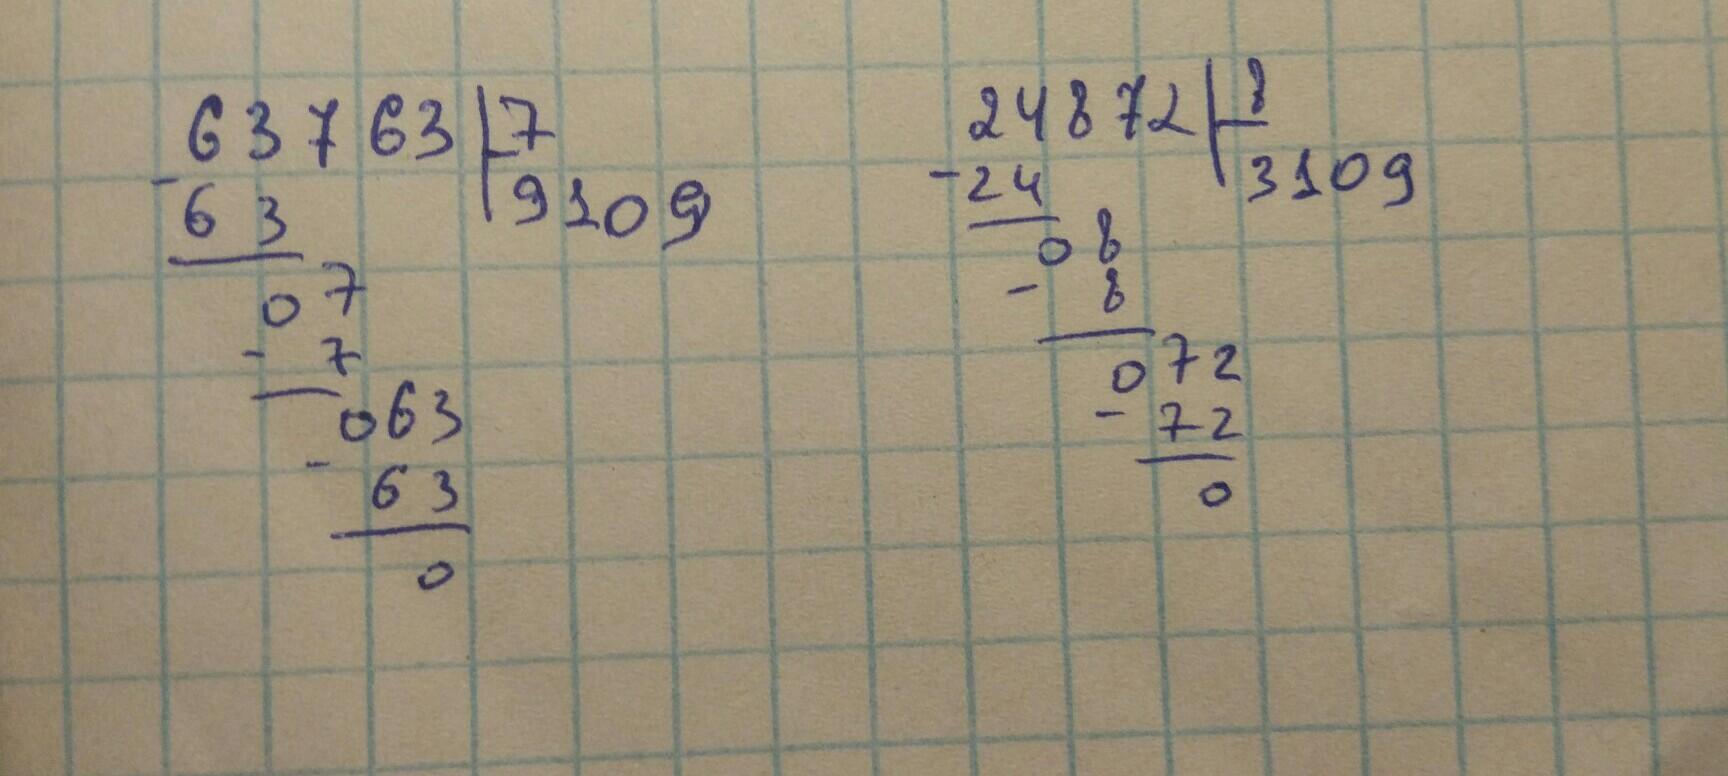 63763 7
- 63 9109
07
- 7
063
- 63
0
24872 8
- 24 3109
08
- 8
072
- 72
0